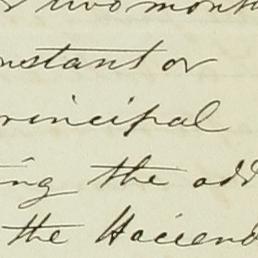 two month
nstant or
rincipal
ing the add
the Haciend